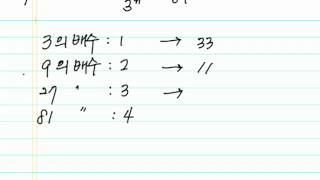 3의배수 : 1 → 33
9의배수 : 2 → 11
27 〃 : 3 →
81 〃 : 4